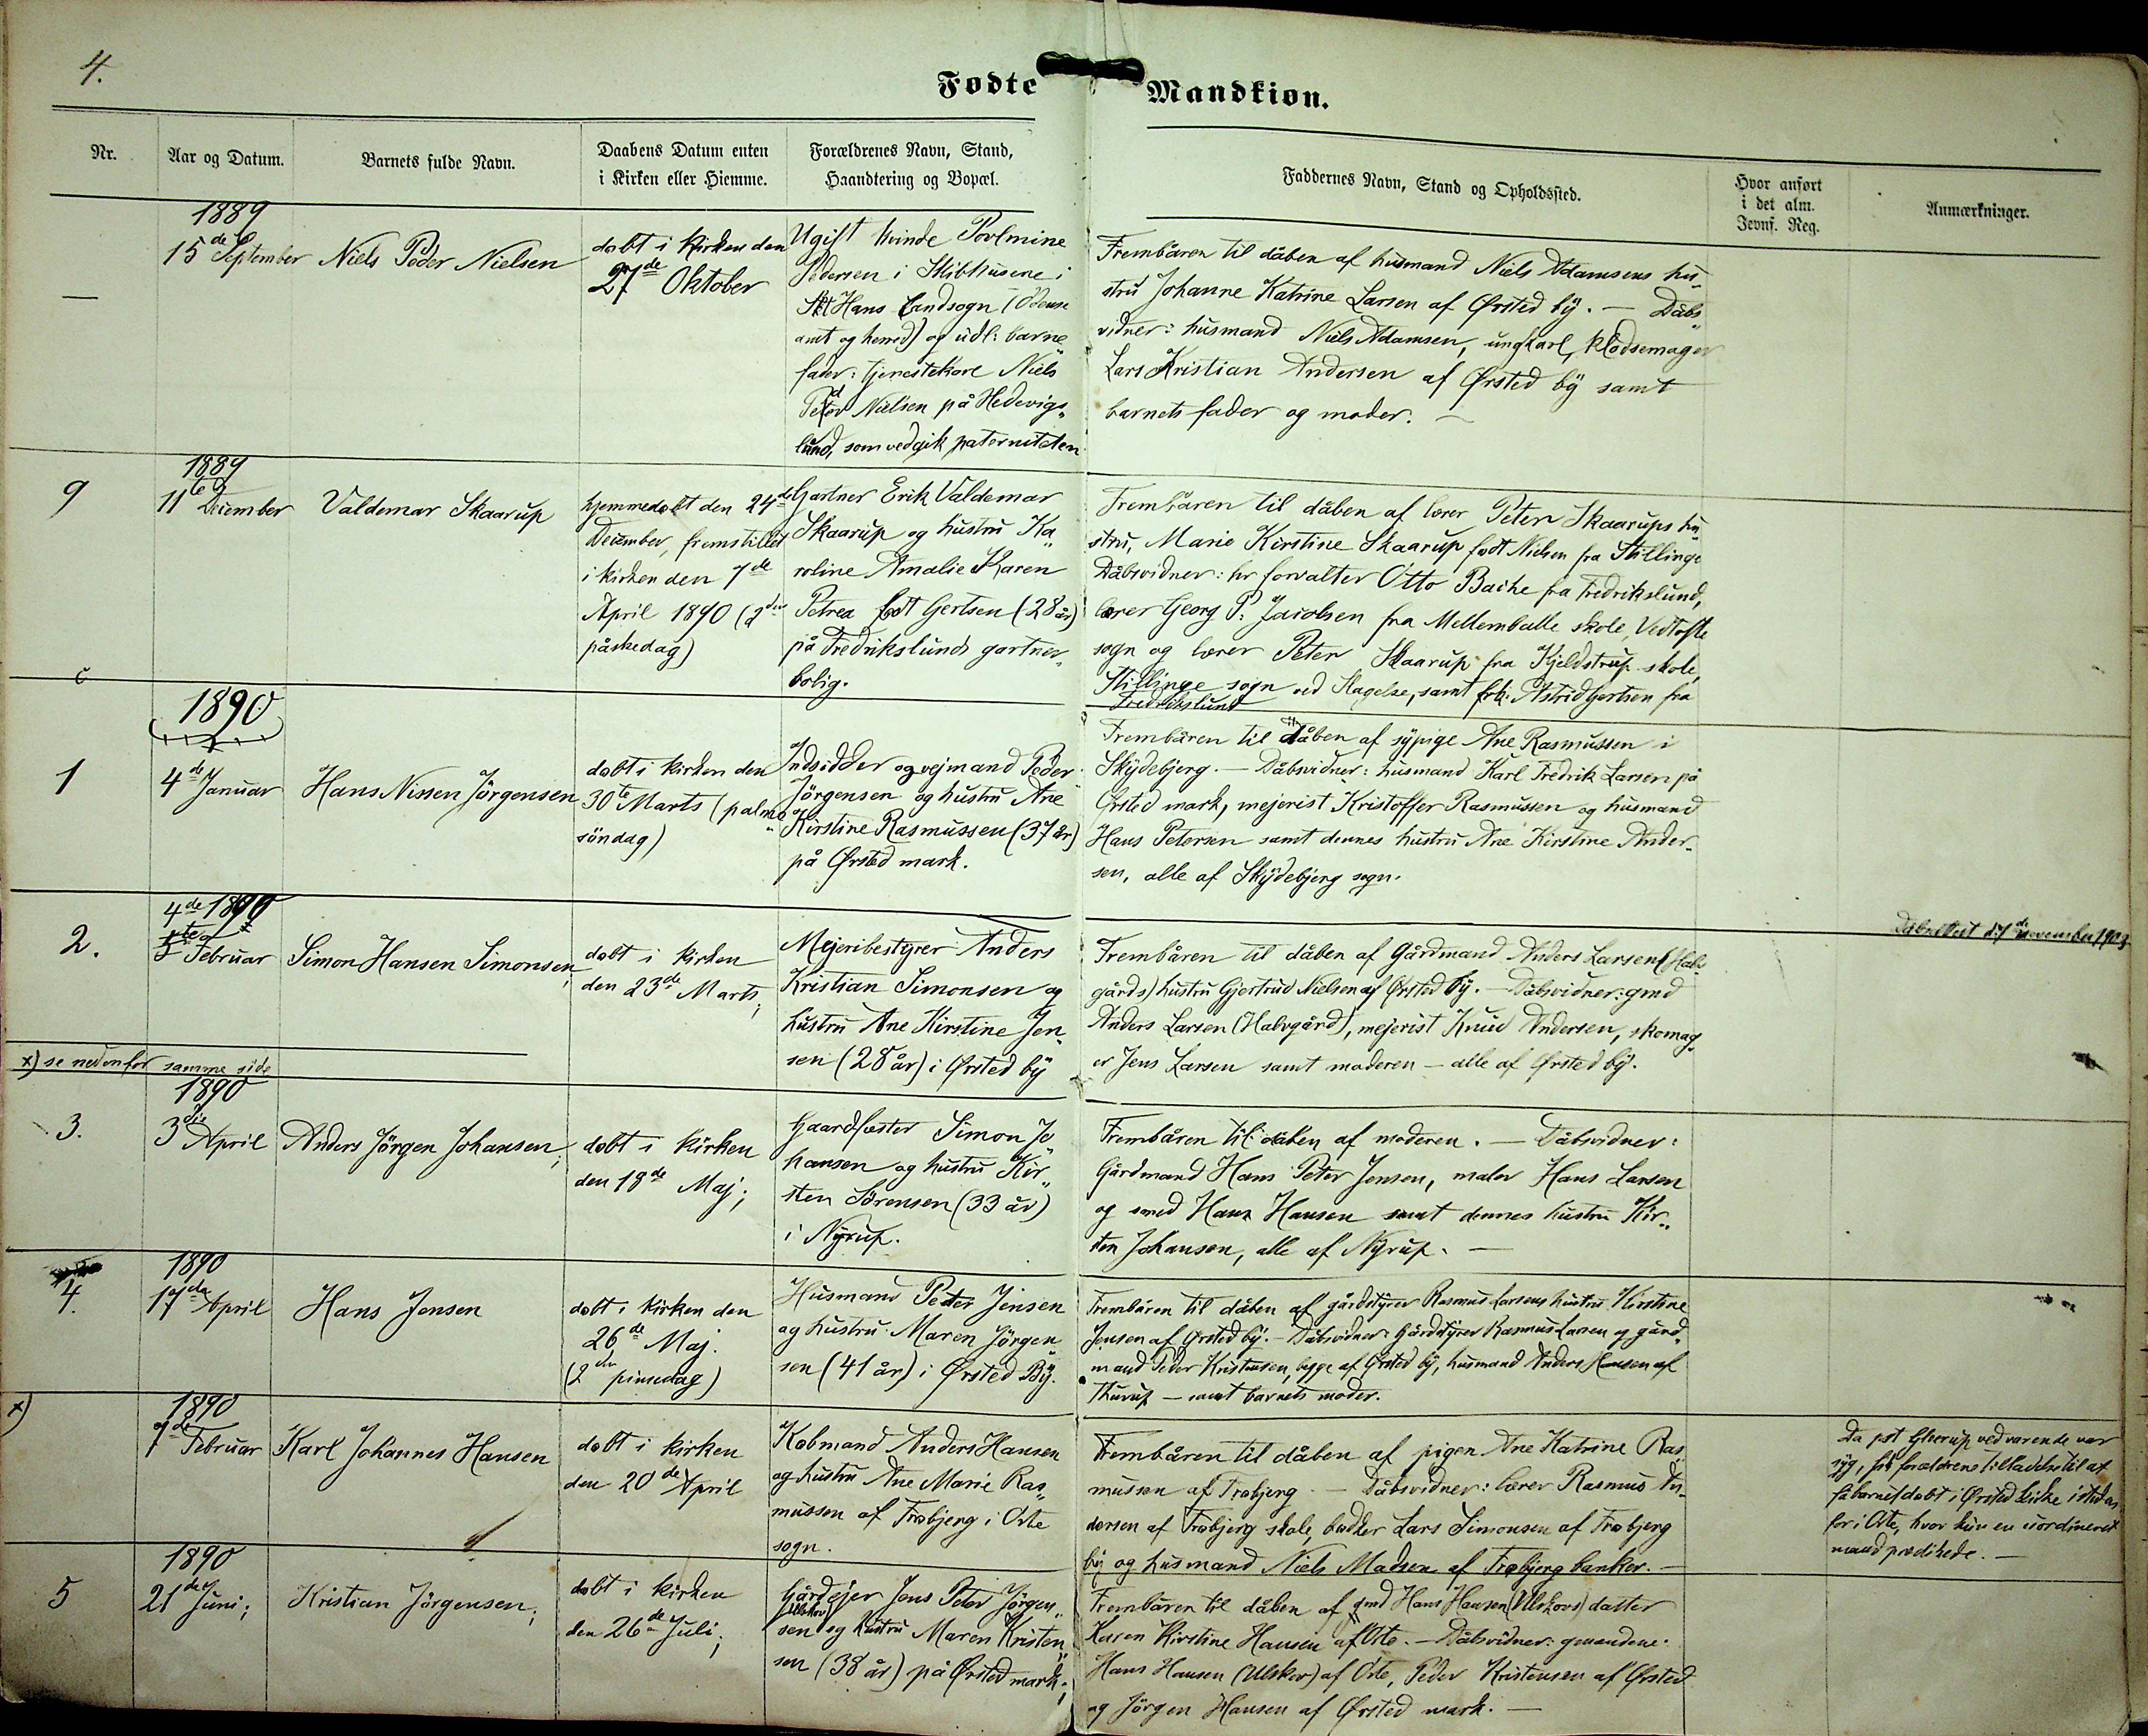 4.
Fødte Mandkiøn.
Nr.
Aar og Datum.
Barnets fulde Navn.
Daabens Datum enten
i Kirken eller Hiemme.
Forældrenes Navn, Stand,
Haandtering og Bopæl.
Faddernes Navn, Stand og Opholdssted.
Hvor anført
i det alm.
Jevnf. Reg.
Anmærkninger.
—
1889
15de September
Niels Peder Nielsen
døbt i kirken den
27de Oktober
Ugift kvinde Povlmine
Pedersen i Skibhusene i
Skt Hans Landsogn (Odense
amt og herred) og udl: barne„
fader: tjenestekarl Niels
Peter Nielsen på Hedevigs„
lund, som vedgik paterniteten
Frembåren til dåben af husmand Niels Adamsens hu„
stru Johanne Katrine Larsen af Ørsted by. — Dåbs„
vidner: husmand Niels Adamsen, ungkarl, klodsemager
Lars Kristian Andersen af Ørsted by samt
barnets fader og moder. —
9
1889
11te December
Valdemar Skaarup
hjemmedøbt den 24de
December, fremstillet
i kirken den 7de
April 1890 (2den
påskedag)
Gartner Erik Valdemar
Skaarup og hustru Ka„
roline Amalie Karen
Petrea født Gertsen (28 år)
på Fredrikslunds gartner„
bolig.
Frembåren til dåben af lærer Peter Skaarups hu„
stru, Marie Kirstine Skaarup født Nielsen fra Stillinge
Dåbsvidner: hr forvalter Otto Bache fra Fredrikslund,
lærer Georg P. Jacobsen fra Mellemballe skole, Vedtofte
sogn og lærer Peter Skaarup fra Kjeldstrup skole,
Stillinge sogn ved Slagelse, samt frk. Astrid Gertsen fra
Fredrikslund
1890
1
4de Januar
Hans Nissen Jörgensen
døbt i kirken den
30te Marts (palme„
söndag)
Indsidder og vejmand Peder
Jörgensen og hustru Ane
Kirstine Rasmussen (37 år)
på Ørsted mark.
Frembåren til dåben af sypige Ane Rasmussen i
Skydebjerg. — Dåbsvidner: husmand Karl Fredrik Larsen på
Ørsted mark, mejerist Kristoffer Rasmussen og husmand
Hans Petersen samt dennes hustru Ane Kirstine Ander„
sen, alle af Skydebjerg sogn.
2.
4de 1890
5te Februar
Simon Hansen Simonsen,
døbt i kirken
den 23de Marts,
Mejeribestyrer Anders
Kristian Simonsen og
hustru Ane Kirstine Jen„
sen (28 år) i Ørsted by
Frembåren til dåben af Gårdmand Anders Larsens (Halv
gårds) hustru Gjertrud Nielsen af Ørsted by. — Dåbsvidner: gmd
Anders Larsen (Halvgård), mejerist Knud Andersen, skomag„
er Jens Larsen samt moderen — alle af Ørsted by.
x) se nedenfor samme side
3.
1890
3die April
Anders Jörgen Johansen,
døbt i kirken
den 18de Maj;
Gaardfæster Simon Jo„
hansen og hustru Kir„
sten Sörensen (33 år)
i Nyrup.
Frembåren til dåben af moderen. — Dåbsvidner:
Gårdmand Hans Peter Jensen, maler Hans Larsen
og smed Hans Hansen samt dennes hustru Kir„
sten Johansen, alle af Nyrup. —
4.
1890
17de April
Hans Jensen
døbt i kirken den
26de Maj.
(2den pinsedag)
Husmand Peder Jensen
og hustru Maren Jörgen„
sen (41 år) i Ørsted By.
Frembåren til dåben af gårdstyrer Rasmus Larsens hustru Kirstine
Jensen af Ørsted by. — Dåbsvidner: Gårdstyrer Rasmus Larsen og gård„
mand Peder Kristensen, begge af Ørsted by, husmand Anders Hansen af
Thurup — samt barnets moder.
x)
1890
7de Februar
Karl Johannes Hansen
døbt i kirken
den 20de April
Købmand Anders Hansen
og hustru Ane Marie Ras„
mussen af Frøbjerg i Orte
sogn.
Frembåren til dåben af pigen Ane Katrine Ras„
mussen af Frøbjerg. — Dåbsvidner: lærer Rasmus An„
dersen af Frøbjerg skole, bødker Lars Simonsen af Frøbjerg
by og husmand Niels Madsen af Frøbjerg banker. —
Da pst Gherup vedvarende var
syg, fik forældrene tilladelse til at
få barnet døbt i Ørsted kirke istedet
for i Orte, hvor kun en uordineret
mand prædikede. —
5
1890
21de Juni;
Kristian Jörgensen,
døbt i kirken
den 26de Juli,
Gårdejer Jens Peter Jörgen„
sen og hustru Maren Kristen„
sen (38 år) på Ørsted mark;
Frembåren til dåben af gmd Hans Hansen (Ulskovs) datter
Karen Kirstine Hansen af Orte. — Dåbsvidner: gmændene
Hans Hansen (Ulskov) af Orte, Peder Kristensen af Ørsted
og Jörgen Hansen af Ørsted mark. —